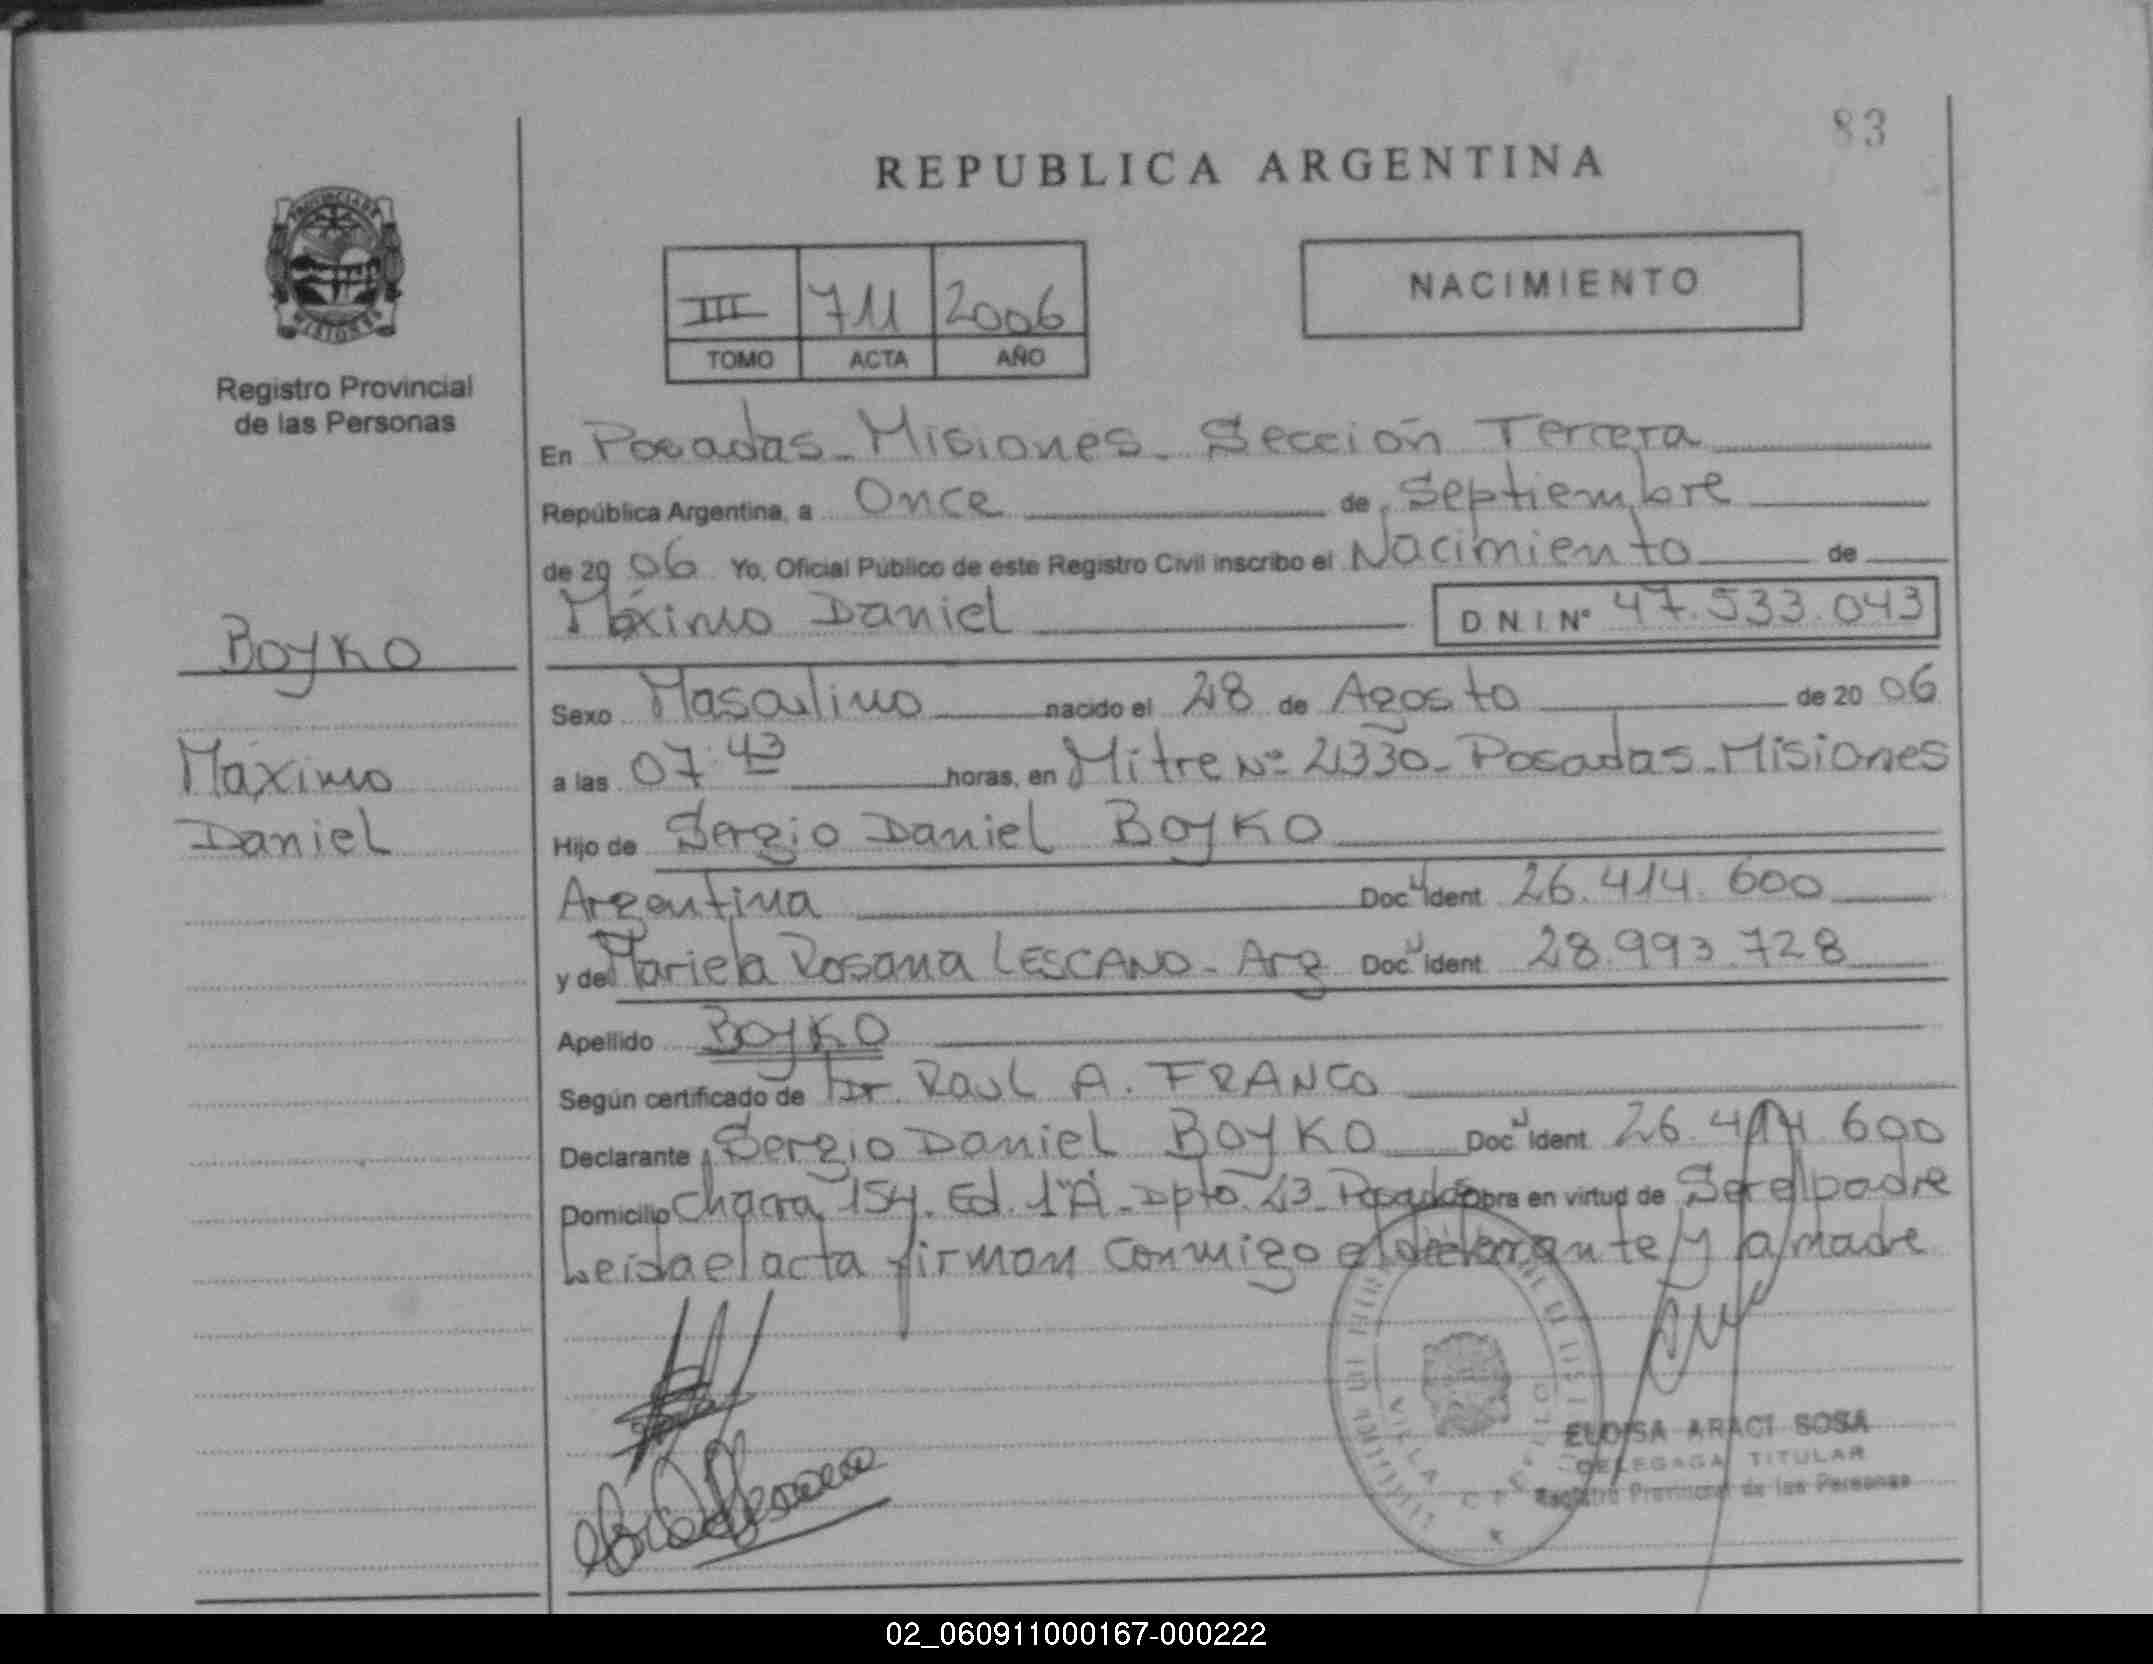 83
REPUBLICA ARGENTINA
PROVINCIA DE
MISIONES
Registro Provincial
de las Personas
III 711 2006
TOMO ACTA AÑO
NACIMIENTO
En Posadas - Misiones - Sección Tercera
República Argentina, a Once de Septiembre
de 2006 Yo, Oficial Público de este Registro Civil inscribo el Nacimiento de
Máximo Daniel D.N.I. Nº 47.533.043
Boyko
Máximo
Daniel
Sexo Masculino nacido el 28 de Agosto de 2006
a las 07:43 horas, en Mitre Nº 2330 - Posadas - Misiones
Hijo de Sergio Daniel BOYKO
Argentina Doc Ident 26.414.600
y de Mariela Rosana LESCANO - Arg Doc Ident 28.993.728
Apellido BOYKO
Según certificado de Dr. Raul A. FRANCO
Declarante Sergio Daniel BOYKO Doc Ident 26.414.600
Domicilio Chacra 154. Ed. 1"A" - Dpto. 23 - Posadas obra en virtud de Ser el padre
Leida el acta firman conmigo el declarante y la madre
ELOISA ARACI SOSA
DELEGADA TITULAR
Registro Provincial de las Personas
02_060911000167-000222